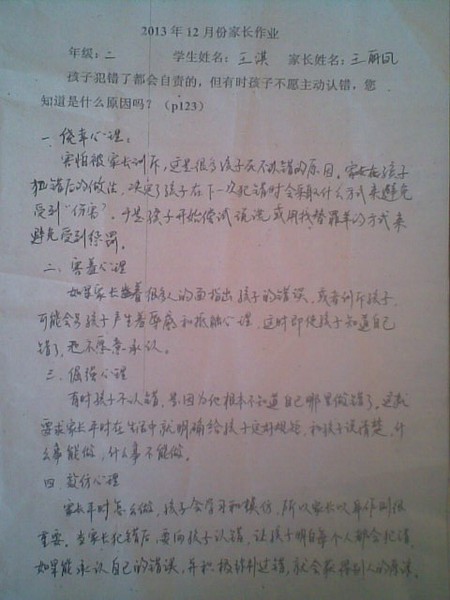 2013年12月份家长作业
年级：二 学生姓名：王淇 家长姓名：王丽凤
孩子犯错了都会自责的，但有时孩子不愿主动认错，您
知道是什么原因吗？（p123）
一、侥幸心理：
害怕被家长训斥，这是很多孩子死不认错的原因，家长在孩子
犯错后的做法，决定了孩子在下一次犯错时会采取什么方式来避免
受到“伤害”。于是孩子开始尝试说谎或用找替罪羊的方式来
避免受到惩罚。
二、害羞心理
如果家长当着很多人的面指出孩子的错误，或者训斥孩子，
可能会另孩子产生羞辱感和抵触心理，这时即使孩子知道自己
错了，也不愿意承认。
三、倔强心理
有时孩子不认错，是因为他根本不知道自己哪里做错了，这就
要求家长平时在生活中就明确给孩子定好规矩，和孩子说清楚，什
么事能做，什么事不能做。
四 效仿心理
家长平时怎么做，孩子会学习和模仿，所以家长以身作则很
重要。当家长犯错后，要向孩子认错，让孩子明白每个人都会犯错，
如果能承认自己的错误，并积极弥补过错，就会获得别人的原谅。